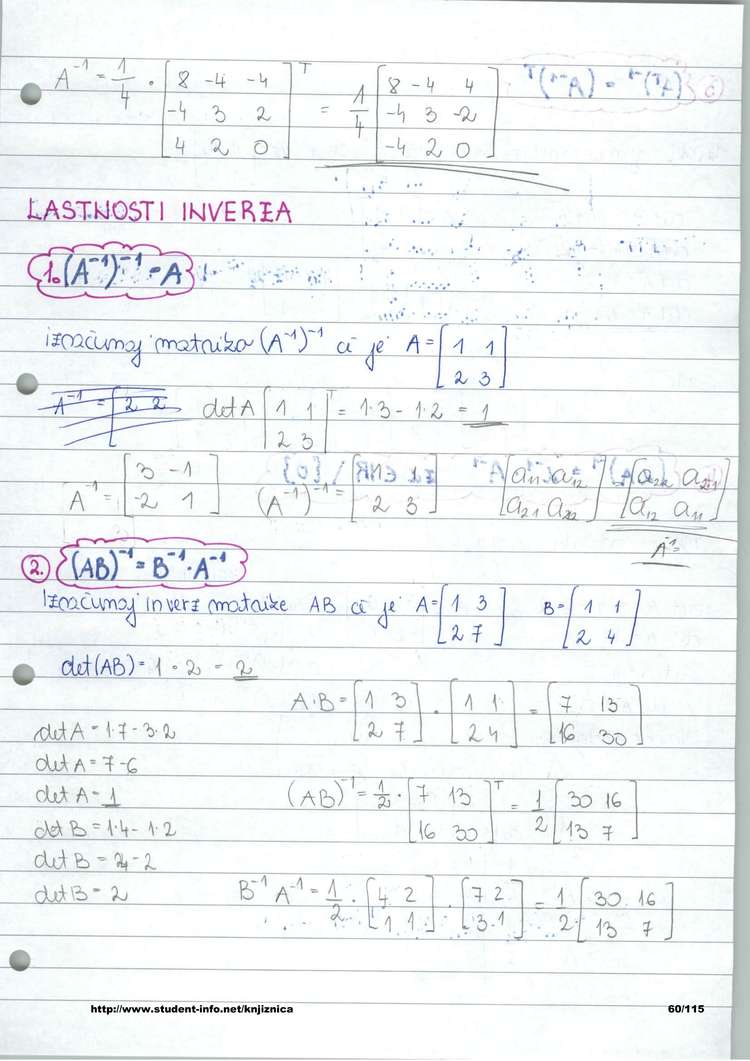 A⁻¹ = 1/4 · [8 -4 -4; -4 3 2; 4 2 0]ᵀ = 1/4 [8 -4 4; -4 3 -2; -4 2 0]
LASTNOSTI INVERZA
1. (A⁻¹)⁻¹ = A
Izračunaj matriko (A⁻¹)⁻¹ či je A = [1 1; 2 3]
A⁻¹ = [2 2 det A [1 1; 2 3]ᵀ = 1·3 - 1·2 = 1
A⁻¹ = [3 -1; -2 1] (A⁻¹)⁻¹ = [1 1; 2 3] [a₁₁ a₁₂; a₂₁ a₂₂] [a₂₂ a₂₁; a₁₂ a₁₁]
A⁻¹=
2. (AB)⁻¹ = B⁻¹ · A⁻¹
Izračunaj inverz matrike AB či je A = [1 3; 2 7] B = [1 1; 2 4]
det(AB) = 1 · 2 = 2
A·B = [1 3; 2 7] · [1 1; 2 4] = [7 13; 16 30]
det A = 1·7 - 3·2
det A = 7 - 6
det A = 1
(AB)⁻¹ = 1/2 · [7 13; 16 30]ᵀ = 1/2 [30 16; 13 7]
det B = 1·4 - 1·2
det B = 4 - 2
det B = 2
B⁻¹ A⁻¹ = 1/2 · [4 2; 1 1] · [7 2; 3 1] = 1/2 [30 16; 13 7]
http://www.student-info.net/knjiznica 60/115